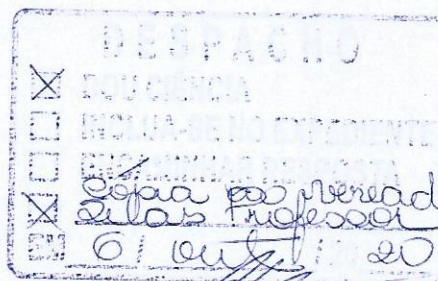 DESPACHO
DOU CIÊNCIA
INCLUA-SE NO EXPEDIENTE
ENCAMINHAR RESPOSTA
Cópia ao Veread
Silas Professor
6 / out / 20